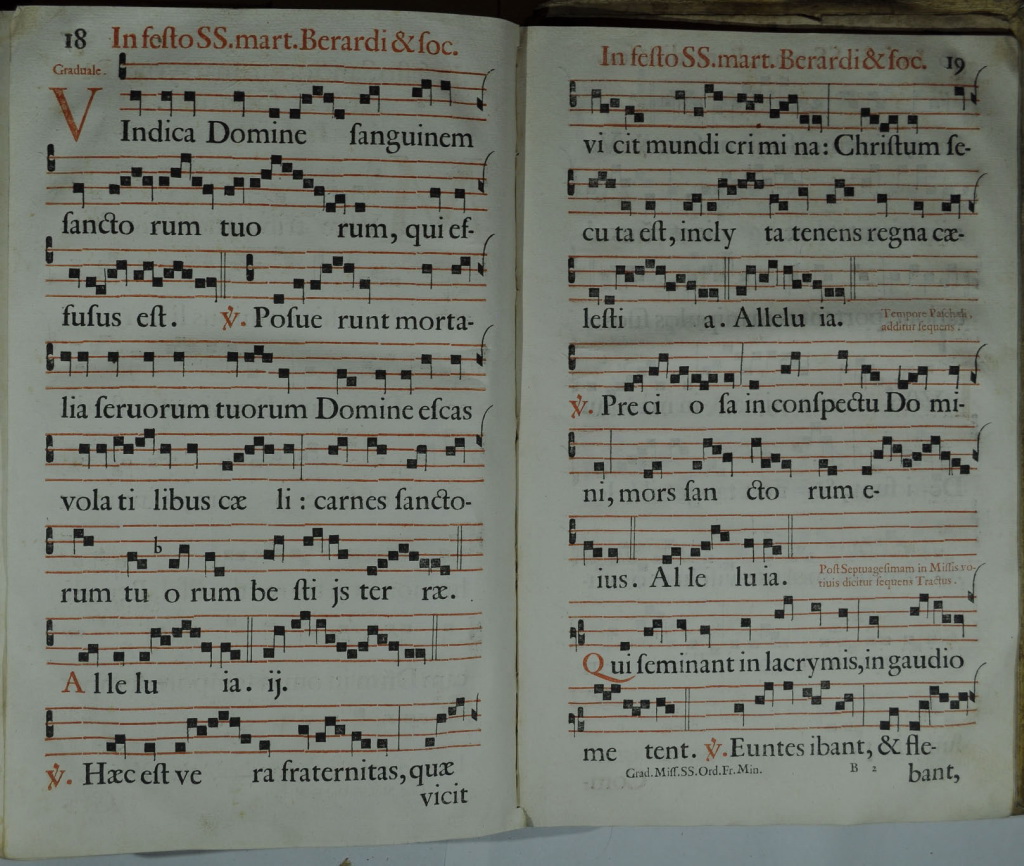 18 In festo SS. mart. Berardi & soc.
Graduale.
VIndica Domine sanguinem
sancto rum tuo rum, qui ef-
fusus est. ℣. Posue runt morta-
lia seruorum tuorum Domine escas
vola ti libus cæ li : carnes sancto-
b
rum tu o rum be sti js ter ræ.
Al le lu ia. ij.
℣. Hæc est ve ra fraternitas, quæ
vicit
In festo SS. mart. Berardi & soc. 19
vi cit mundi cri mi na: Christum se-
cu ta est, incly ta tenens regna cæ-
lesti a. Allelu ia. Tempore Paschali.
additur sequens.
℣. Pre ci o sa in conspectu Do mi-
ni, mors san cto rum e-
ius. Al le lu ia. Post Septuagesimam in Missis vo-
tiuis dicitur sequens Tractus.
Qui seminant in lacrymis, in gaudio
me tent. ℣. Euntes ibant, & fle-
Grad. Miss. SS. Ord. Fr. Min. B 2 bant,